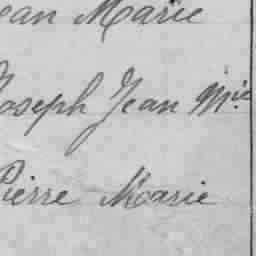 ean Marie
Joseph Jean Mie
Pierre Marie